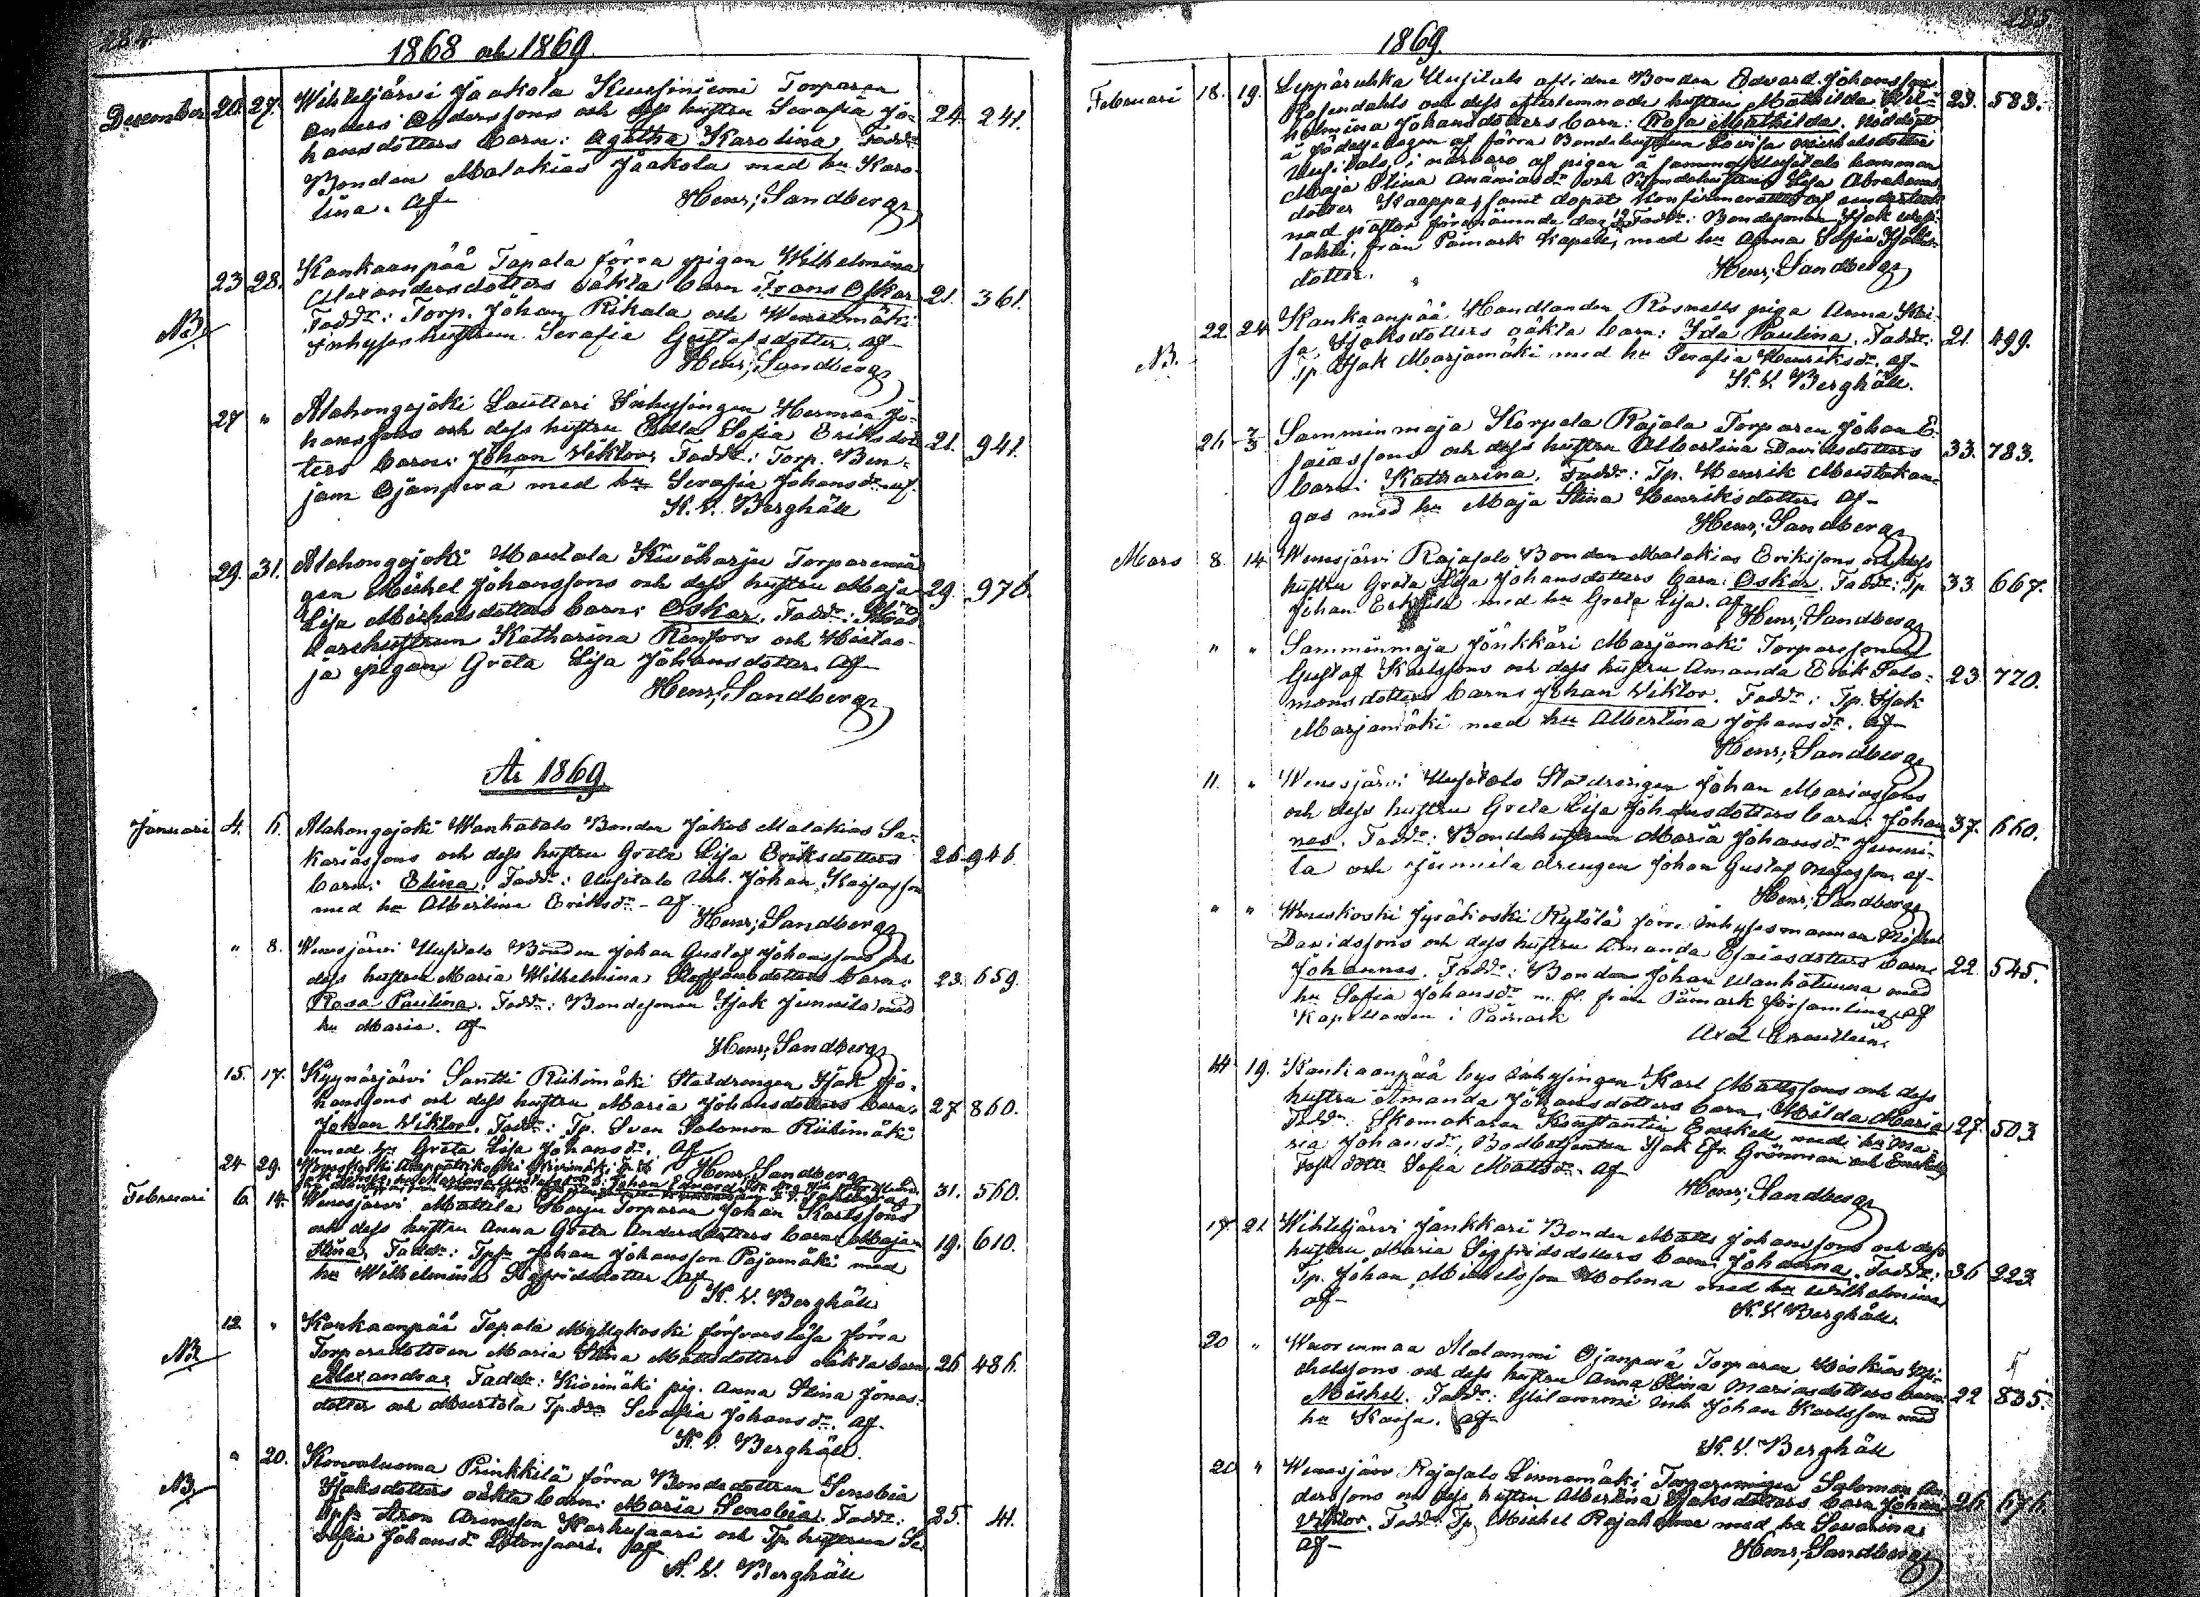 284.
1868 och 1869.
December 20. 27. Wihteljärvi Jaakola Kuusiniemi Torparen
Anders Anderssons och dess hustru Serafia Jo- 24. 241.
hansdotters barn: Agatha Karolina, Faddr:
Bonden Malakias Jaakola med hu Karo-
lina. af
Henr; Sandberg
23 28. Kankaanpää Tapala förra pigan Wilhelmina
Alexandersdotters oäkta barn Frans Oskar 21. 361.
NB. Faddr: Torp. Johan Rikala och
Inhyseshustrun Serafia Gustafsdotter. af
Henr; Sandberg
27 " Alahongojoki Lauttari Inhysingen Herman Jo-
hanssons och dess hustru Edla Sofia Eriksdot- 21. 941.
ters barn: Johan Wiktor, Faddr: Torp. Ben-
jam Ojanperä med hu Serafia Johansdr af
K. V. Berghäll
29. 31. Alahongojoki Mautala Kiviharju Torparemå-
gen Michel Johanssons och dess hustru Maja 29. 976.
Lisa Michelsdotters barn: Oskar. Faddr:
hustrun Katharina Renfors och
ja pigan Greta Lisa Johansdotter. af
Henr; Sandberg
År 1869.
Januari 4. 6. Alahongojoki Wankatalo Bonden Jakob Malakias Sa-
kariassons och dess hustru Greta Lisa Eriksdotters 26. 946.
barn: Elina. Faddr: Uusitalo Inh. Johan
med hu Albertina Eriksdr - af
Henr; Sandberg
" 8. Wenesjärvi Uusitalo Bonden Johan Gustaf Johanssons och
dess hustru Maria Wilhelmina Staffansdotters barn: 23. 659.
Rosa Paulina. Faddr: Bondesonen Isak Junnila med
hu Maria. af
Henr; Sandberg
15. 17. Kyynärjärvi Santti Riihimäki Statdrengen Isak Jo-
hanssons och dess hustru Maria Johansdotters barn: 27 860.
Johan Wiktor. Faddr: Tp. Sven Salomon Riihimäki
med hu Greta Lisa Johansdr. af
Henr; Sandberg
24 29. 31. 560.
Februari 6. 14. Wenesjärvi Mattila Harju Torparen Johan Karlssons
och dess hustru Anna Greta Andersdotters barn: Maja 19. 610.
Stina. Faddr: Johan Johansson Pajamäki med
hu Wilhelmina Sigfridsdotter af
K. V. Berghäll
12 " Kankaanpää Tapala Myllykoski försvarslösa förra
Torparedottren Maria Stina Mattsdotters oäkta barn 26 486.
NB. Alexandra, Faddr: Kivimäki pig. Anna Stina Jonas-
dotter och Mustola Serafia Johansdr. af
K. V. Berghäll.
" 20. Korvaluoma Prinkkilä förra Bondedottren Senobia
NB. Isaksdotters oäkta barn: Maria Senobia. Faddr: 25. 41.
Aron Aronsson Karhusaari och Tp. hustrun Se-
rafia Johansdr af
K. V. Berghäll
285
1869.
Februari 18. 19. Leppäruhka Uusitalo aflidne Bonden Edvard Johansson
Rosendahls och dess efterlemnade hustru Mathilda Wil- 23. 583.
helmina Johansdotters barn: Rosa Mathilda. Nöddöpt
å födelsedagen af förra Bondehustrun Lovisa Michelsdotter
Uusitalo, i närvaro af pigan å samma Uusitalo hemman
Maja Stina Ananiasdr och Bondehustrun Lisa Abrahams-
dotter Kaappa, samt dopet konfirmerattes af underteck-
nad påföljande dag. Faddr: Bondesonen Isak
lahti, från Påmark kapell, med hu Anna Sofia
dotter.
Henr; Sandberg
22. 24 Kankaanpää Handlanden Rosnells piga Anna Kai-
NB. sa Isaksdotters oäkta barn: Ida Paulina. Faddr: 21. 499.
Tp. Isak Marjamäki med hu Serafia Henriksdr. af
K. V. Berghäll.
26 7/3 Samminmaja Korpela Rajala Torparen Johan E-
saiassons och dess hustru Albertina Davidsdotters 33. 783.
barn: Katharina. Faddr: Tp. Henrik Mustakan-
gas med hu Maja Stina Henriksdotter. af
Henr; Sandberg
Mars 8. 14 Wenesjärvi Rajasalo Bonden Malakias Erikssons och dess
hustru Greta Lisa Johansdotters barn: Oskar. Faddr: Tp 33 667.
Johan Erkkilä med hu Greta Lisa. af
Henr; Sandberg
" " Samminmaja Jönkkäri Marjamäki Torparesonen
Gustaf Karlssons och dess hustru Amanda Erik Salo- 23 770.
monsdotters barn: Johan Wiktor. Faddr: Tp. Isak
Marjamäki med hu Albertina Johansdr. af
Henr; Sandberg
11. " Wenesjärvi Uusitalo Statdrengen Johan Mariassons
och dess hustru Greta Lisa Johansdotters barn: Johan- 37. 660.
nes. Faddr: Bondehustrun Maria Johansdr Junni-
la och Junnila drengen Johan Gustaf Mariasson af
Henr; Sandberg
" " Weneskoski Jyräkoski Rytölä förra Inhysesmannen Michel
Davidssons och dess hustru Amanda Esaiasdotters barn: 22 545.
Johannes. Faddr: Bonden Johan Wanhatuuna med
hu Sofia Johansdr m. fl. från Påmark församling, af
Kapellanen i Påmark
Axel
14 19. Kankaanpää bys Inhysingen Karl Mattssons och dess
hustru Amanda Johansdotters barn: Milda Maria 27. 503
Faddr: Skomakaren Konstantin med hu Ma-
ria Johansdr, Isak Efr. Grönman och
Sofia Mattsdr. af
Henr; Sandberg
17. 21 Wihteljärvi Jankkari Bonden Matts Johanssons och dess
hustru Maria Sigfridsdotters barn: Johanna. Faddr: 36 223
Tp. Johan Michelsson Holma med hu Wilhelmina
af
K. V. Berghäll.
20 " Wuorenmaa Alatammi Ojanperä Torparen Hiskias Mi-
chelssons och dess hustru Anna Stina Mariasdotters barn: 22 835.
Michel. Faddr: Ylitammi Inh Johan Karlsson med
hu Kaisa. af
K. V. Berghäll
20 " Wenesjärvi Rajasalo Linnamäki Torparemågen Salomon An-
derssons och dess hustru Albertina Isaksdotters barn Johan 26. 676
Viktor. Faddr: Tp. Michel med hu Severina
af
Henr; Sandberg